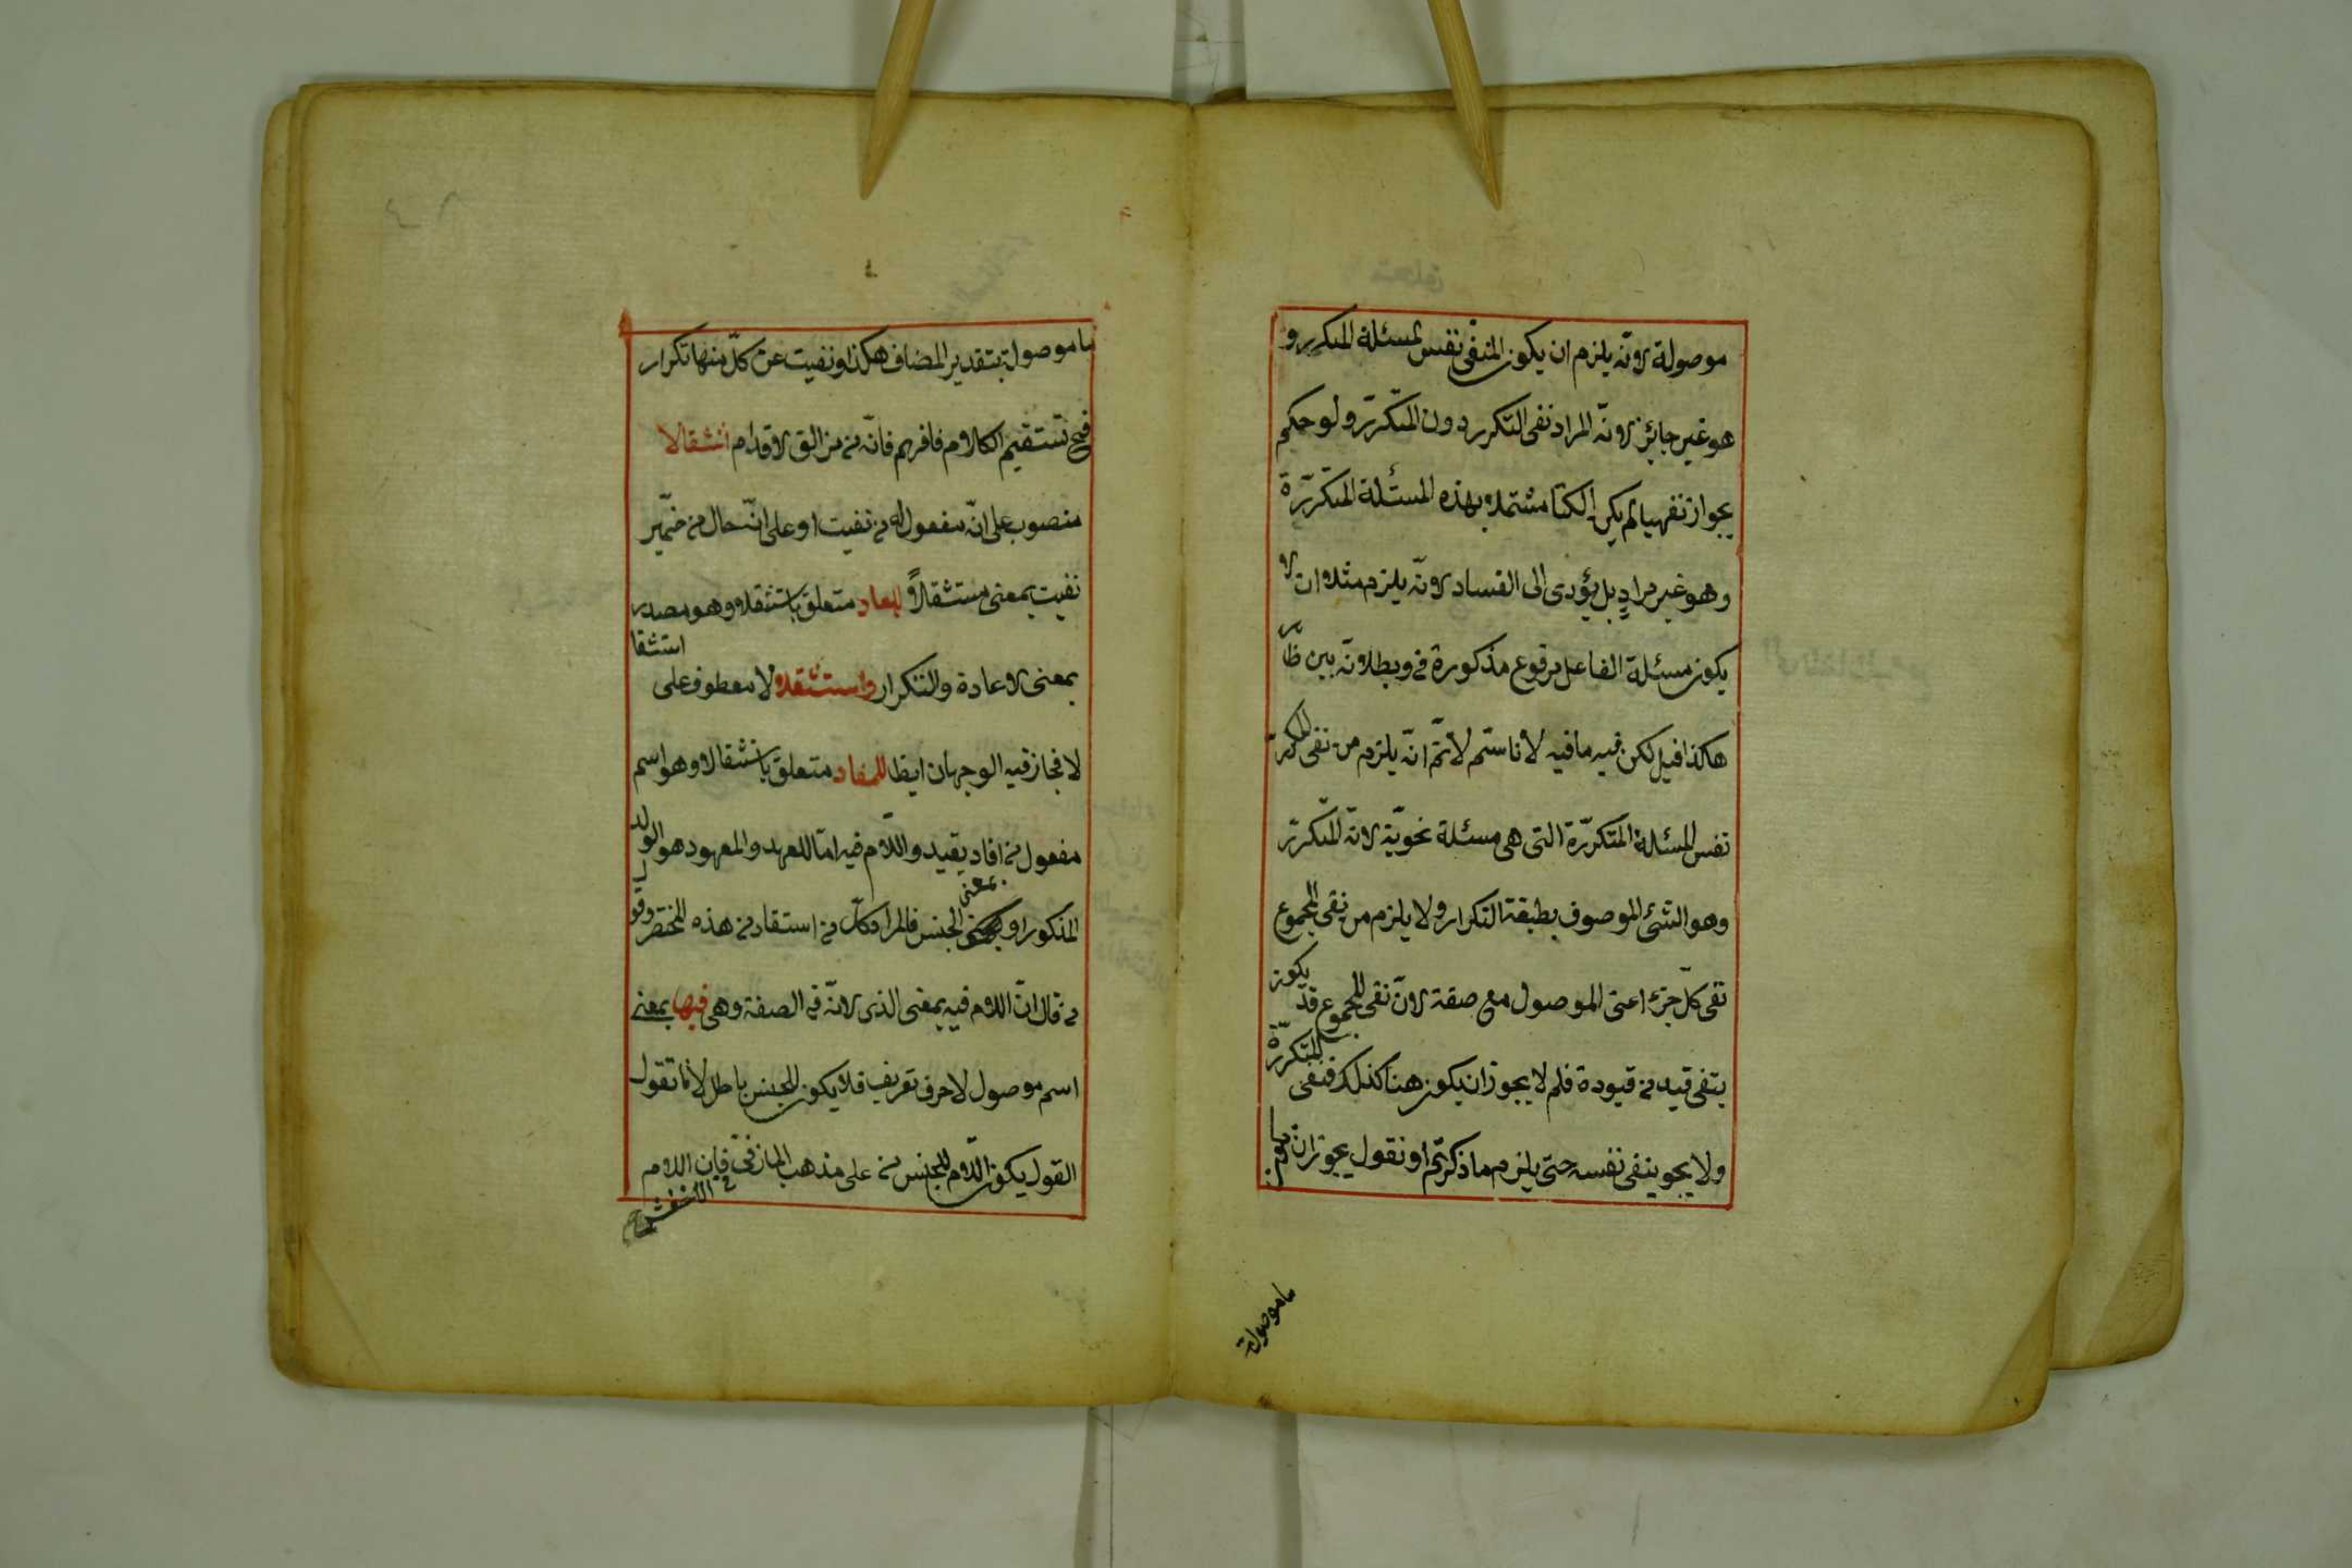 موصولة لانّه يلزم ان يكون المنفى نفس المسئلة المتكرر و
هو غير جائز لانّه المراد نفى التكرر دون المتكرّر ولو حكم
بجواز نفيها لم يكن الكتا مشتملا بهذه المسئلة المتكرّرة
وهو غير مرادٍ بل يؤدى الى الفساد لانّه يلزم مثلا ان لا
يكون مسئلة الفاعل مرفوع مذكورة فى وبطلانه بين ظا
هر
هكذا قيل لكن فيه ما فيه لانا لا نم انّه يلزم من نفى المتكرّر
نفس المسئلة المتكرّرة التى هى مسئلة نحويّة لانّه المتكرّر
وهو الشئ الموصوف بطبقة التكرار ولا يلزم من نفى المجموع
نفى كلّ جزء اعنى الموصول مع صفة لانّ نفى المجموع قد يكون
بنفى قيد من قيودة فلم لا يجوز ان يكون هنا كذلك فنفى المتكرّرة
ولا يجو ينفى نفسه حتى يلزم ما ذكرتم او نقول يجوز ان يكون
ما موصولة
ما موصولة بتقدير المضاف هكذا ونفيت عن كلّ منها تكرار
فح تستقيم الكلام فافهم فانّه من مزالق الاقدام استثقالا
منصوب على انّه مفعول له من نفيت او على انّه حال من ضمير
نفيت بمعنى مستثقلاً للمعاد متعلق باستثقلا وهو مصدر
بمعنى الاعادة والتكرار واستثقلالا معطوف على استثقا
لا فجاز فيه الوجهان ايظا للمفاد متعلق باستثقالا وهو اسم
مفعول من افاد يفيد واللّام فيه امّا للعهد والمعهود هو الولد
المذكور او بمعنى الجنس فالمراد كلّ من استفاد من هذه المختصر وقول
من قال انّ اللام فيه بمعنى الذى لانّه فى الصفة وهى فيها بمعنى
اسم موصول لا حرف تعريف فلا يكون للجنس باطل لانا نقول
القول يكون اللّام للجنس من على مذهب المازنى فان اللام